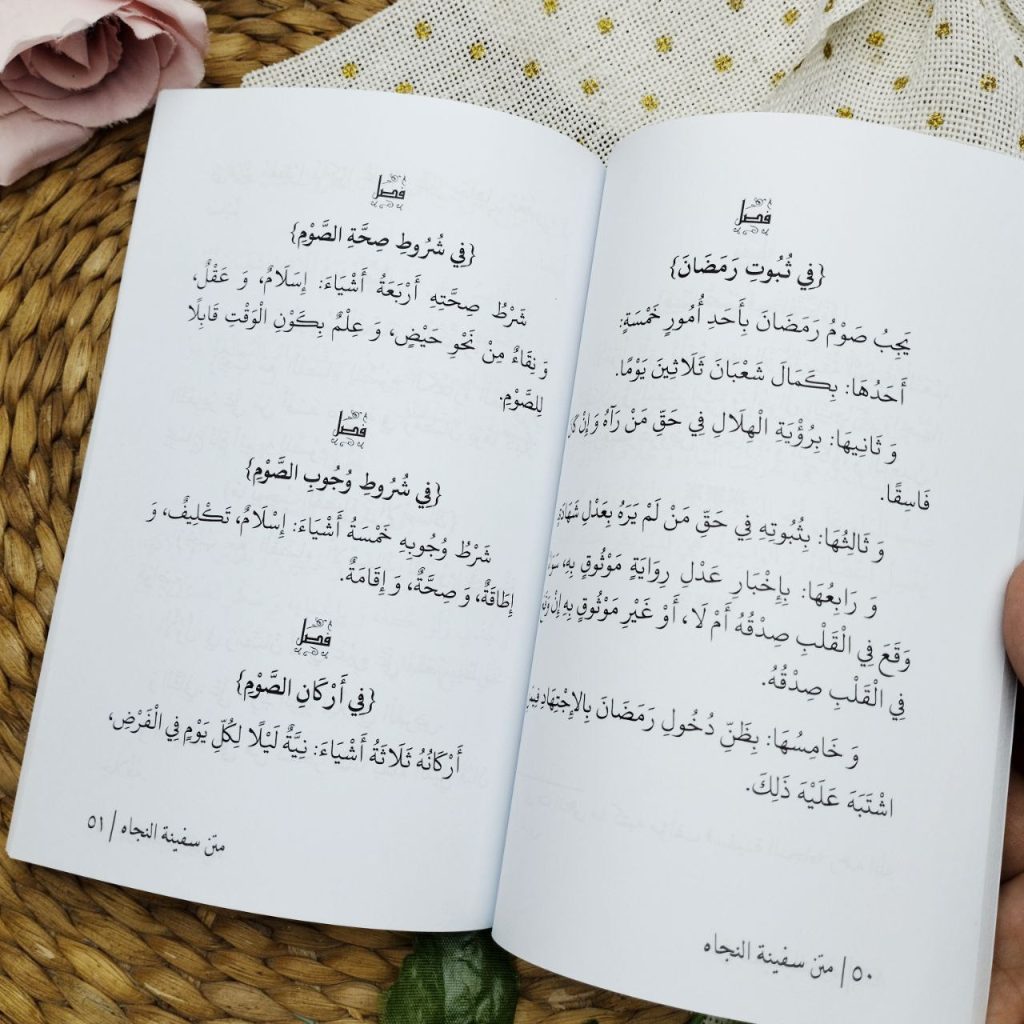 فصل
{فِي ثُبُوتِ رَمَضَانَ}
يَجِبُ صَوْمُ رَمَضَانَ بِأَحَدِ أُمُورٍ خَمْسَةٍ:
أَحَدُهَا: بِكَمَالِ شَعْبَانَ ثَلَاثِينَ يَوْمًا.
وَ ثَانِيهَا: بِرُؤْيَةِ الْهِلَالِ فِي حَقِّ مَنْ رَآهُ وَإِنْ كَانَ
فَاسِقًا.
وَ ثَالِثُهَا: بِثُبُوتِهِ فِي حَقِّ مَنْ لَمْ يَرَهُ بِعَدْلِ
وَ رَابِعُهَا: بِإِخْبَارِ عَدْلِ رِوَايَةٍ مَوْثُوقٍ بِهِ،
وَقَعَ فِي الْقَلْبِ صِدْقُهُ أَمْ لَا، أَوْ غَيْرِ مَوْثُوقٍ بِهِ إِنْ وَقَعَ
فِي الْقَلْبِ صِدْقُهُ.
وَ خَامِسُهَا: بِظَنِّ دُخُولِ رَمَضَانَ بِالِاجْتِهَادِ
اشْتَبَهَ عَلَيْهَ ذَلِكَ.
٥٠ | متن سفينة النجاه
فصل
{فِي شُرُوطِ صِحَّةِ الصَّوْمِ}
شَرْطُ صِحَّتِهِ أَرْبَعَةُ أَشْيَاءَ: إِسْلَامٌ، وَ عَقْلٌ،
وَ نِقَاءٌ مِنْ نَحْوِ حَيْضٍ، وَ عِلْمٌ بِكَوْنِ الْوَقْتِ قَابِلًا
لِلصَّوْمِ.
فصل
{فِي شُرُوطِ وُجُوبِ الصَّوْمِ}
شَرْطُ وُجُوبِهِ خَمْسَةُ أَشْيَاءَ: إِسْلَامٌ، تَكْلِيفٌ، وَ
إِطَاقَةٌ، وَ صِحَّةٌ، وَ إِقَامَةٌ.
فصل
{فِي أَرْكَانِ الصَّوْمِ}
أَرْكَانُهُ ثَلَاثَةُ أَشْيَاءَ: نِيَّةٌ لَيْلًا لِكُلِّ يَوْمٍ فِي الْفَرْضِ،
متن سفينة النجاه | ٥١